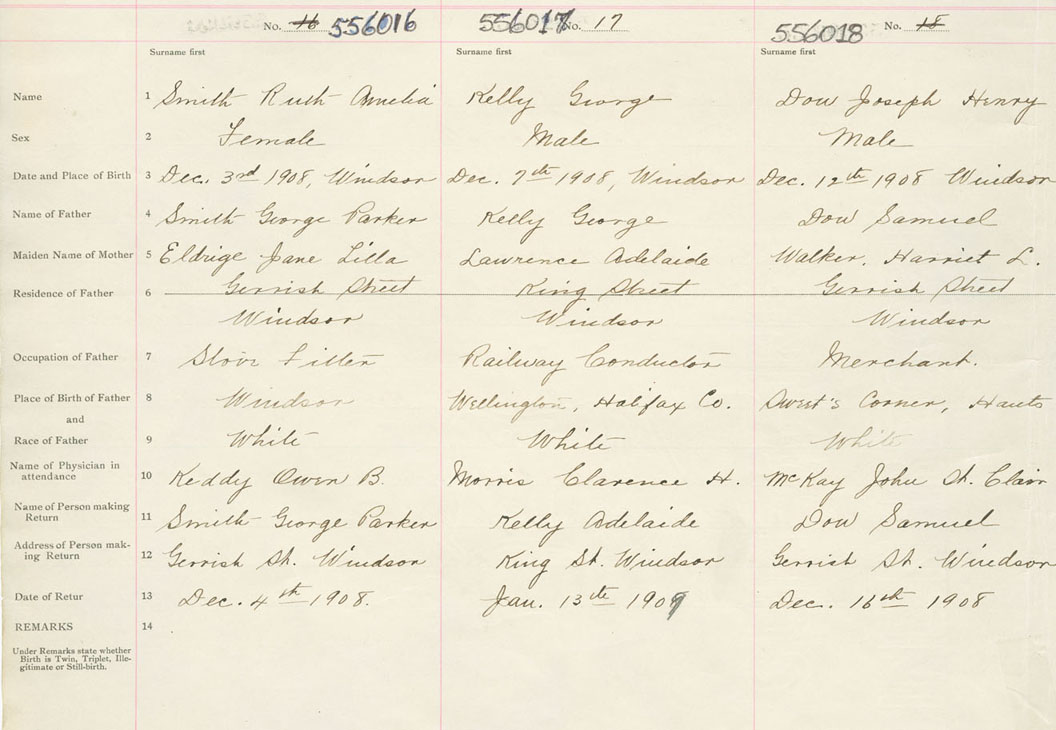 No. 16 556016 556017 No. 17 556018 No. 18
Surname first Surname first Surname first
Name 1 Smith Ruth Amelia Kelly George Dow Joseph Henry
Sex 2 Female Male Male
Date and Place of Birth 3 Dec. 3rd 1908, Windsor Dec. 7th 1908, Windsor Dec. 12th 1908 Windsor
Name of Father 4 Smith George Parker Kelly George Dow Samuel
Maiden Name of Mother 5 Eldrige Jane Lilla Lawrence Adelaide Walker, Harriet L.
Residence of Father 6 Gerrish Street King Street Gerrish Street
Windsor Windsor Windsor
Occupation of Father 7 Stove Fitter Railway Conductor Merchant.
Place of Birth of Father 8 Windsor Wellington, Halifax Co. Corner, Hants
and
Race of Father 9 White White White
Name of Physician in
attendance 10 Keddy Owen B. Morris Clarence H. McKay John St. Clair
Name of Person making
Return 11 Smith George Parker Kelly Adelaide Dow Samuel
Address of Person mak-
ing Return 12 Gerrish St. Windsor King St. Windsor Gerrish St. Windsor
Date of Retur 13 Dec. 4th 1908. Jan. 13th 1909 Dec. 16th 1908
REMARKS 14
Under Remarks state whether
Birth is Twin, Triplet, Ille-
gitimate or Still-birth.